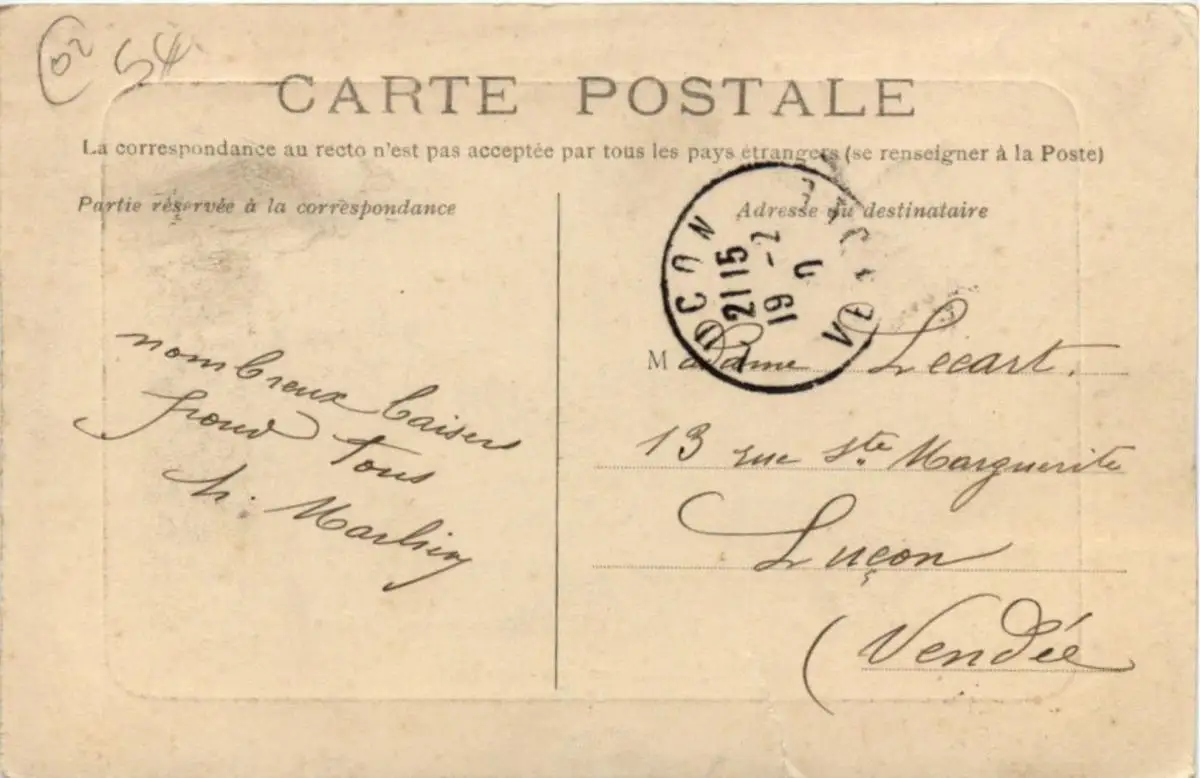 02 54
CARTE POSTALE
La correspondance au recto n'est pas acceptée par tous les pays étrangers (se renseigner à la Poste)
Partie réservée à la correspondance
Adresse du destinataire
nombreux baisers
pour tous
h. Marlin
UÇON
21 15
19 -2
VENDÉE
Madame Lecart.
13 rue Ste Marguerite
Luçon
(Vendée